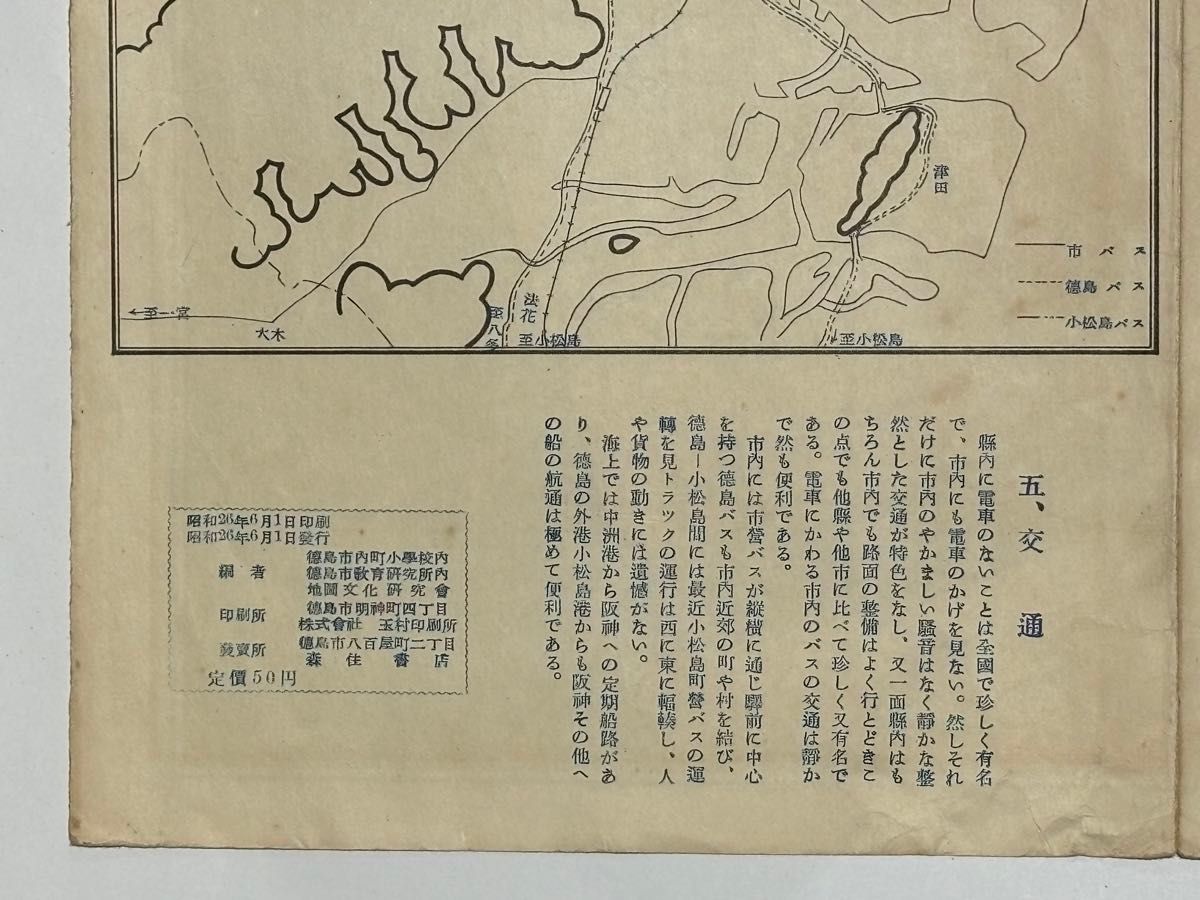 津田
市バス
德島バス
小松島バス
←至一宮
大木
至八多
法花
至小松島
至小松島
五、交通
縣內に電車のないことは全國で珍しく有名
で、市內にも電車のかげを見ない。然しそれ
だけに市內のやかましい騷音はなく靜かな整
然とした交通が特色をなし、又一面縣內はも
ちろん市內でも路面の整備はよく行とどきこ
の点でも他縣や他市に比べて珍しく又有名で
ある。電車にかわる市內のバスの交通は靜か
で然も便利である。
市內には市營バスが縱橫に通じ驛前に中心
を持つ德島バスも市內近郊の町や村を結び、
德島―小松島間には最近小松島町營バスの運
轉を見トラックの運行は西に東に輻輳し、人
や貨物の動きには遺憾がない。
海上では中洲港から阪神への定期船路があ
り、德島の外港小松島港からも阪神その他へ
の船の航通は極めて便利である。
昭和26年6月1日印刷
昭和26年6月1日發行
編者
德島市內町小學校內
德島市敎育硏究所內
地圖文化硏究會
印刷所
德島市明神町四丁目
株式會社玉村印刷所
發賣所
德島市八百屋町二丁目
森住書店
定價50円